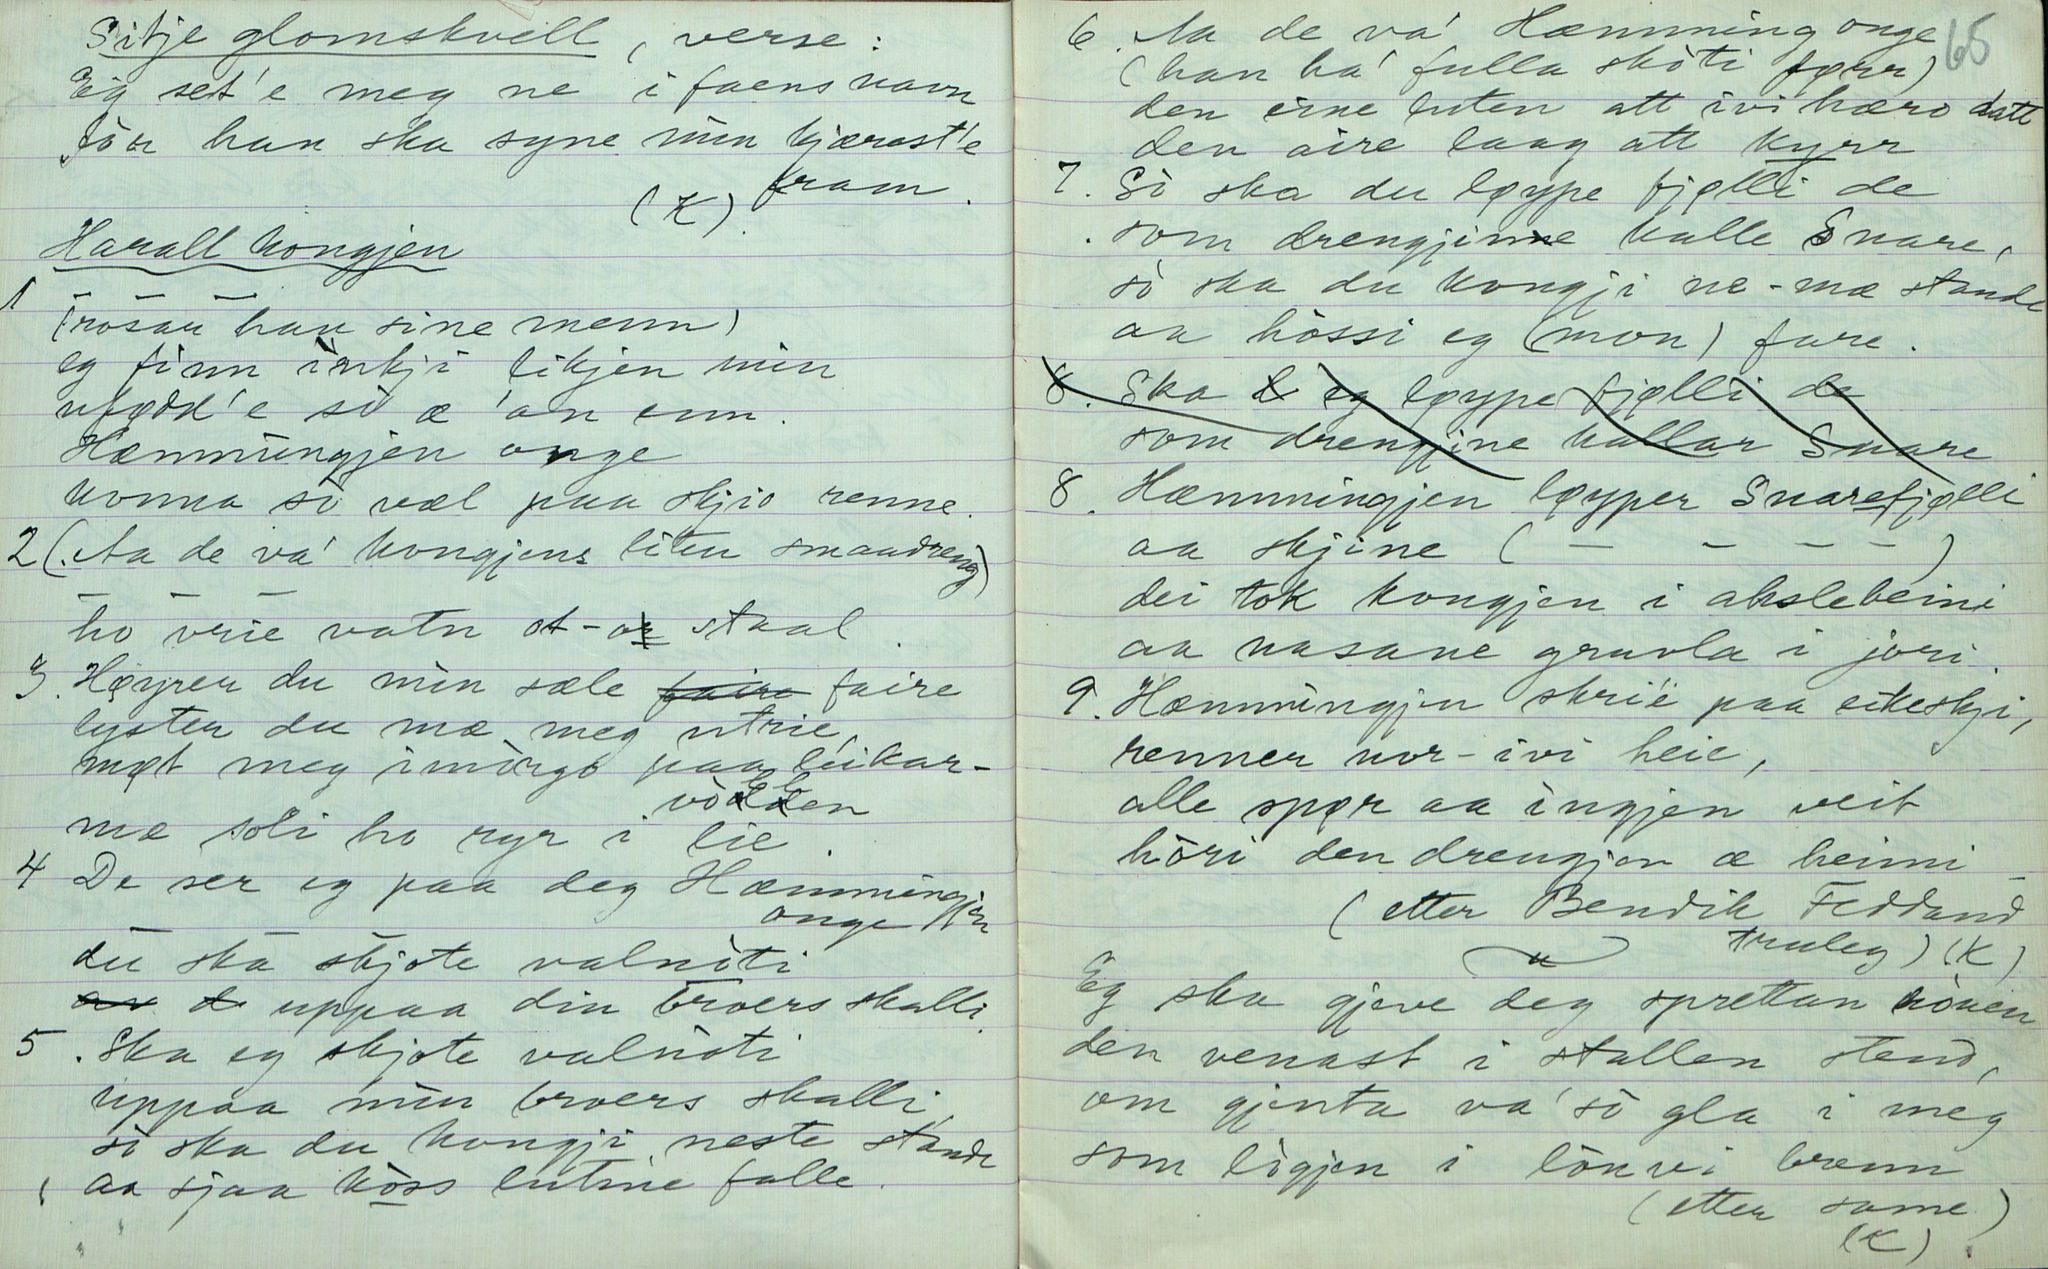 Sitje glomskvell, verse:
Eg set'e meg ne i faens navn
for han ska syne min kjærest'e
fram.
(K)
Harall kongjen
1 — — —
(rosar han sine menn)
eg finn inkji likjen min
ufødd'e sò æ 'an enn.
Hæmmingjen onge
konna sò væl paa skjio renne.
2 (. Aa de va' kongjens liten smaadreng)
— — —
ho vrie vatn ot-or staal.
3. Høyrer du min sæle faire
lyster du mæ meg utrie,
møt meg imòrgo paa leikar-
vòllen
mæ soli ho ryr i lie.
4 De ser eg paa deg Hæmmingjen
onge
du ska skjote valnòti
uppaa din broers skalli.
5. Ska eg skjote valnòti
uppaa min broers skalli,
sò ska du kongji neste stande
aa sjaa hòss lutine falle.
65
6. Aa de va' Hæmming onge
(han ha' fulla skòti førr)
den eine luten att ivi hæro datt
den aire laag att kyrr
7. Sò ska du løype fjølli de
som drengjinne kalle Snare,
sò ska du kongji ne-mæ stande
aa hòssi eg (mon) fare.
8. Ska eg løype fjølli de
som drengjine kallar Snare
8. Hæmmingjen løyper Snarefjølli
aa skjine ( — — — — )
dei tok kongjen i akslebeini
aa nasane gravla i jori.
9. Hæmmingjen skrie paa eikeskji,
renner nor-ivi heie,
alle spør aa ingjen veit
hòri den drengjen æ heimi
(etter Bendik Feddand
truleg) (K)
Eg ska gjeve deg sprettan
den venast i stallen stend,
om gjenta va' sò gla i meg
som lògjen i lòn vi brænn
(etter same)
(K).